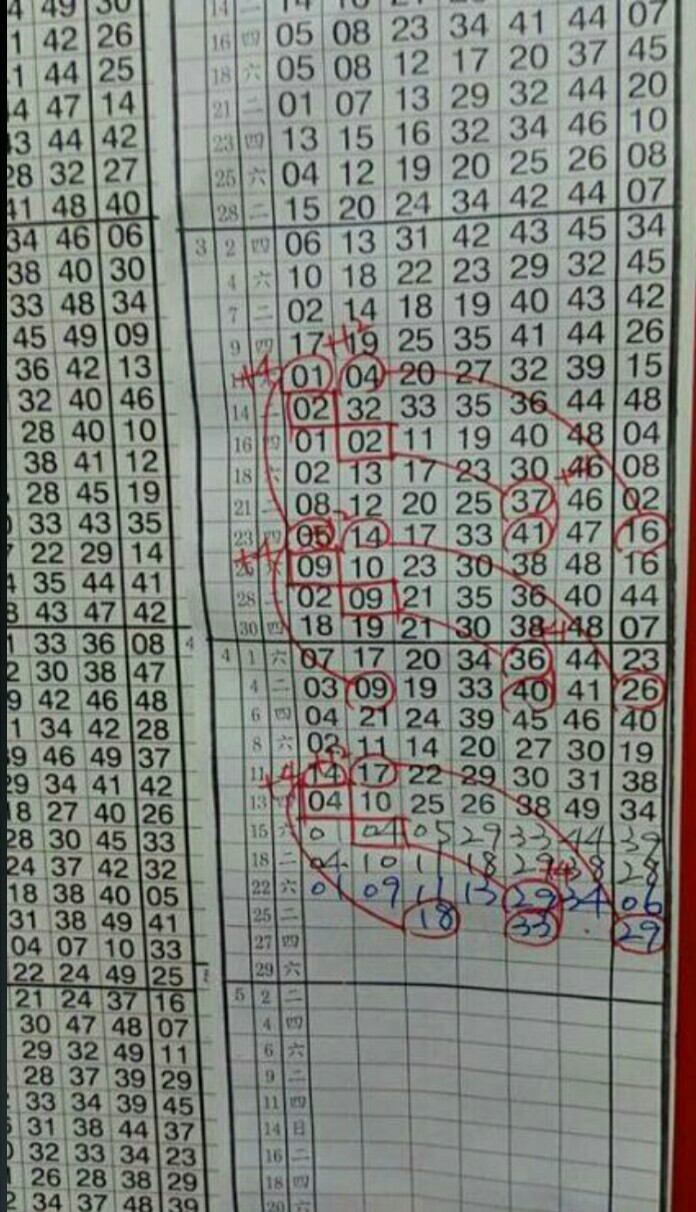 4 49 30 14 二 14 07
1 42 26 16 四 05 08 23 34 41 44 07
1 44 25 18 六 05 08 12 17 20 37 45
44 47 14 21 二 01 07 13 29 32 44 20
43 44 42 23 四 13 15 16 32 34 46 10
28 32 27 25 六 04 12 19 20 25 26 08
41 48 40 28 二 15 20 24 34 42 44 07
34 46 06 3 2 四 06 13 31 42 43 45 34
38 40 30 4 六 10 18 22 23 29 32 45
33 48 34 7 二 02 14 18 19 40 43 42
45 49 09 9 四 17 19 25 35 41 44 26
36 42 13 +4 01 04 20 27 32 39 15
32 40 46 14 二 02 32 33 35 36 44 48
28 40 10 16 四 01 02 11 19 40 48 04
38 41 12 18 六 02 13 17 23 30 46 08
28 45 19 21 二 08 12 20 25 37 46 02
33 43 35 23 四 05 14 17 33 41 47 16
22 29 14 +4 09 10 23 30 38 48 16
35 44 41 28 二 02 09 21 35 36 40 44
43 47 42 30 四 18 19 21 30 38 48 07
33 36 08 4 4 1 六 07 17 20 34 36 44 23
30 38 47 4 二 03 09 19 33 40 41 26
42 46 48 6 四 04 21 24 39 45 46 40
34 42 28 8 六 02 11 14 20 27 30 19
46 49 37 11 14 17 22 29 30 31 38
29 34 41 42 +4 13 04 10 25 26 38 49 34
18 27 40 26 15 六 04 05 29 33 44 39
28 30 45 33 18 二 04 10 11 18 29 38 28
24 37 42 32 22 六 01 09 11 13 29 34 06
18 38 40 05 25 二 18 33 29
31 38 49 41 27 四
04 07 10 33 29 六
22 24 49 25
21 24 37 16 5 2 二
30 47 48 07 4 四
29 32 49 11 6 六
28 37 39 29 9 二
33 34 39 45 11 四
31 38 44 37 14 日
32 33 34 23 16 二
26 28 38 29 18 四
34 37 48 39 20 六